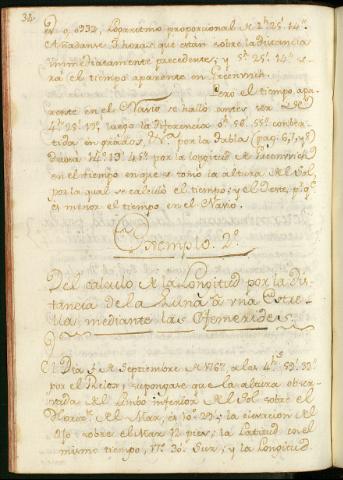 34.
es 0,9332, Logaritmo proporcional de 1h 25' 14".
Añadanse 3 horas que estan sobre la distancia
inmediatamente precedente; y 5h 25' 14" se-
rá el tiempo aparente en Greenwich.
Pero el tiempo apa-
rente en el Navio se halló antes ser
4h 29' 19" luego la diferencia 0h 55' 55" conver-
tida en grados, &a por la tabla (pag.
dará 13° 45" por la longitud de Greenwich
en el tiempo en que se tomó la altura del Sol,
por la qual se calculó el tiempo; y el Oeste, pr. qe.
es menor el tiempo en el Navio.
Exemplo. 2°.
Del calculo de la Longitud por la dis-
tancia de la Luna á una Estre-
lla, mediante las Efemerides.
El Dia de Septiembre de a las 4hs 59' 30"
por el Relox, supongase que la altura obser-
vada del limbo inferior del Sol sobre el
Horizte. del Mar, es 10° 29'; la elevacion del
Ojo sobre el Mar 12 pies; la Latitud en el
mismo tiempo, 17° 30' Sur; y la Longitud